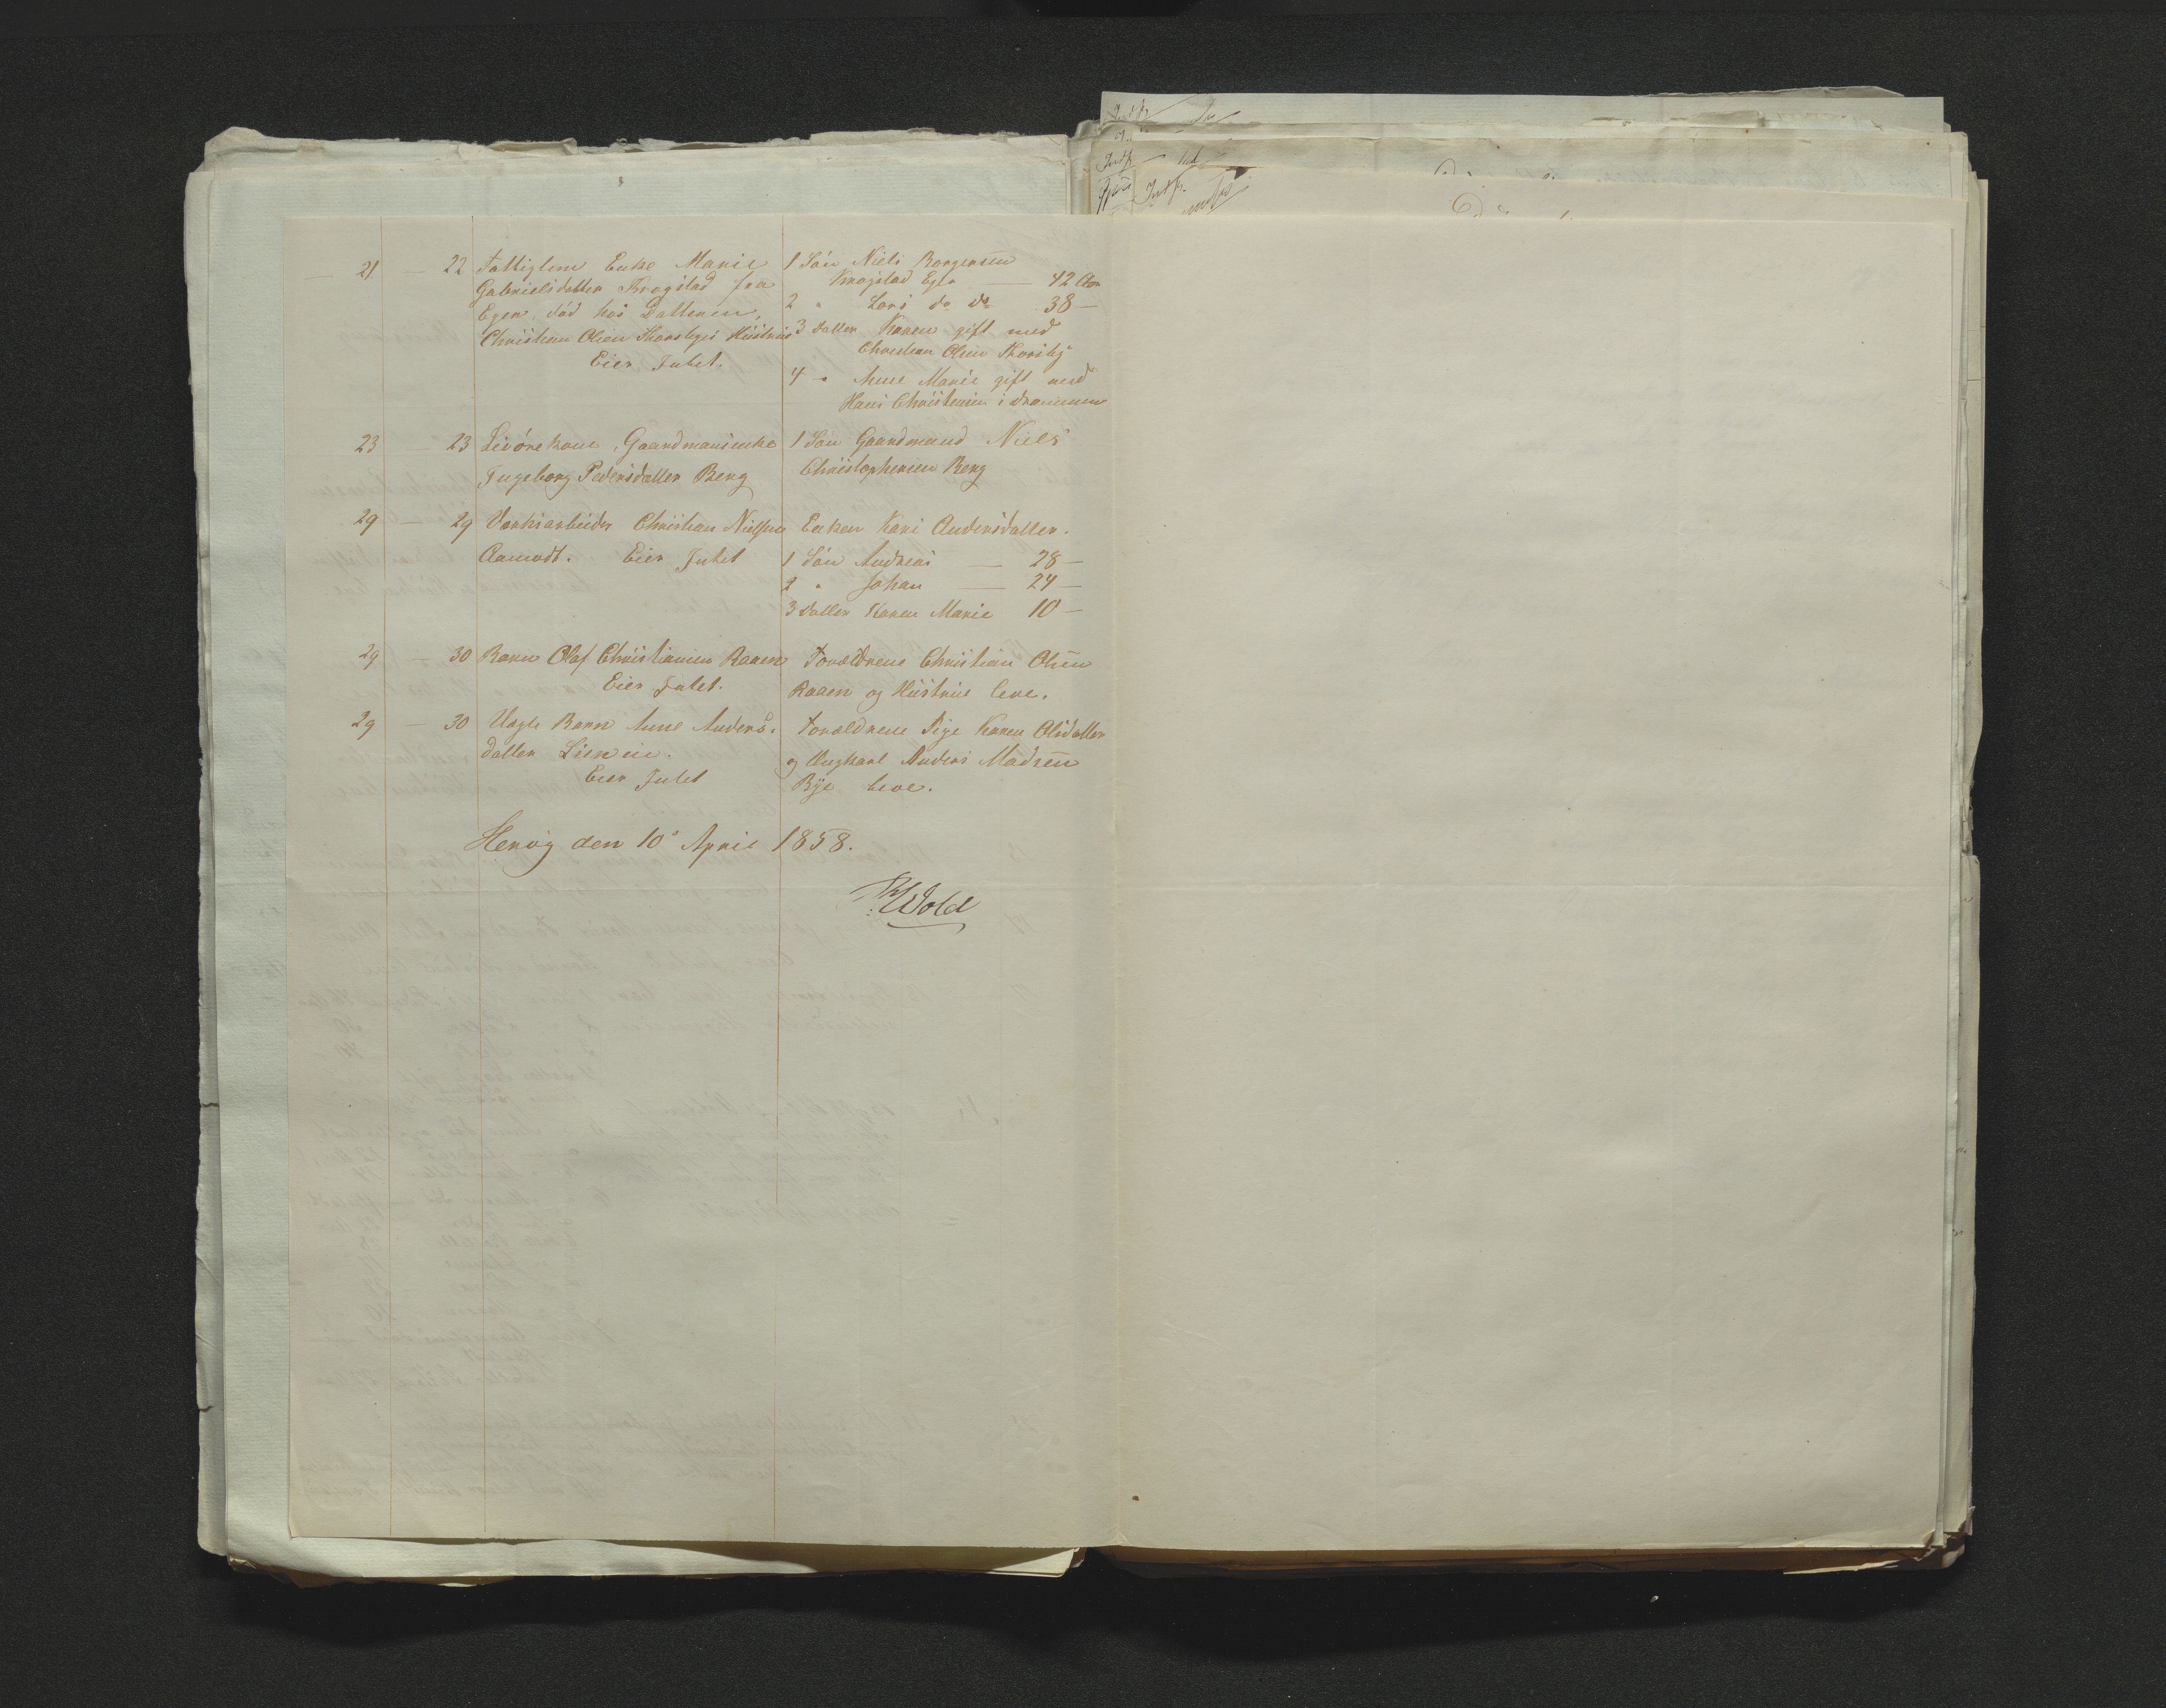 21 — 22 Fattiglem Enke Marie
Gabrielsdatter Krogstad fra
Eger død hos Datteren,
Christian Olsen Skorsbyes Hüstrüe
Eier Intet.
1 Søn Niels Borgersen
Krogstad Eger — 42 Aar
2 " Lars do do 38 —
3 Datter Karen gift med
Christian Olsen Skorsby
4 " Anne Marie gift med
Hans Christensen i Drammen
23 — 23 Livørekone, Gaardmandsenke
Ingeborg Pedersdatter Berg
1 Søn Gaardmand Niels
Christophersen Berg
29 — 29 Værksarbeider Christian Nielsen
Aamodt. Eier Intet
Enken Kari Andersdatter.
1 Søn Andreas — 28 —
2 " Johan — 24 —
3 Datter Karen Marie 10 —
29 — 30 Barn Olaf Christiansen Raaen
Eier Intet.
Forældrene Christian Olsen
Raaen og Hüstrüe leve.
29 — 30 Uægte Barn Anne Anders-
datter Lien eie.
Eier Intet
Forældrene Pige Karen Olsdatter
og Ungkarl Anders Madsen
Bÿe leve.
den 10de April 1858.
Wold